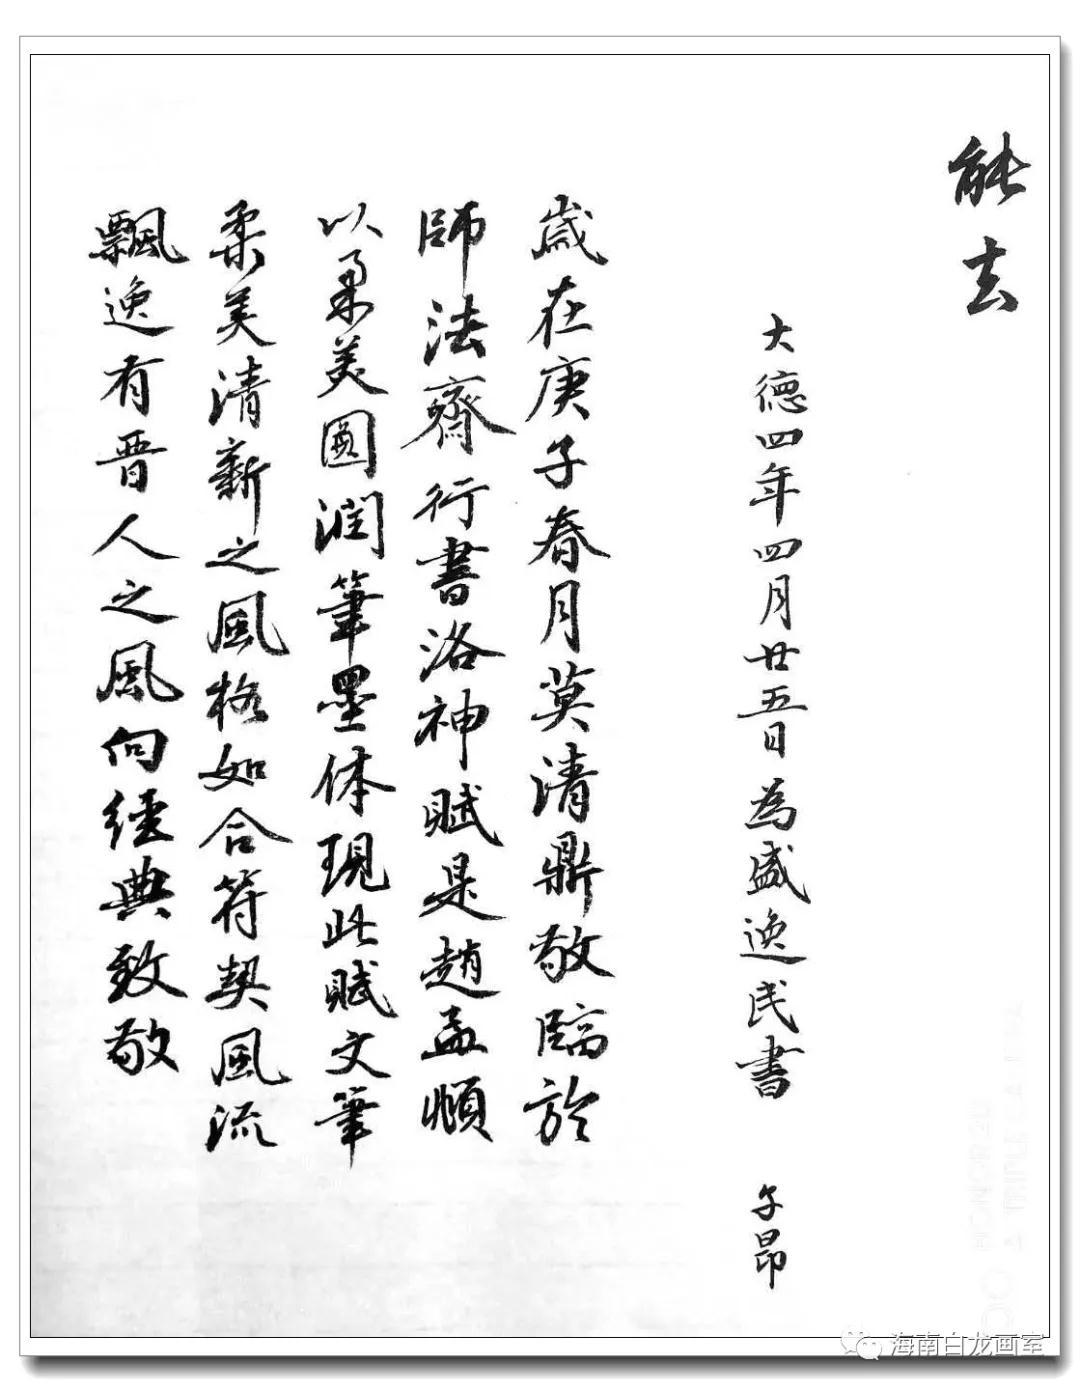 能去
大德四年四月廿五日為盛逸民書 子昂
歲在庚子春月莫清鼎敬臨於
師法齋行書洛神賦是趙孟頫
以柔美圓潤筆墨体現此賦文筆
柔美清新之風格如合符契風流
飄逸有晋人之風向經典致敬
海南白龙画室